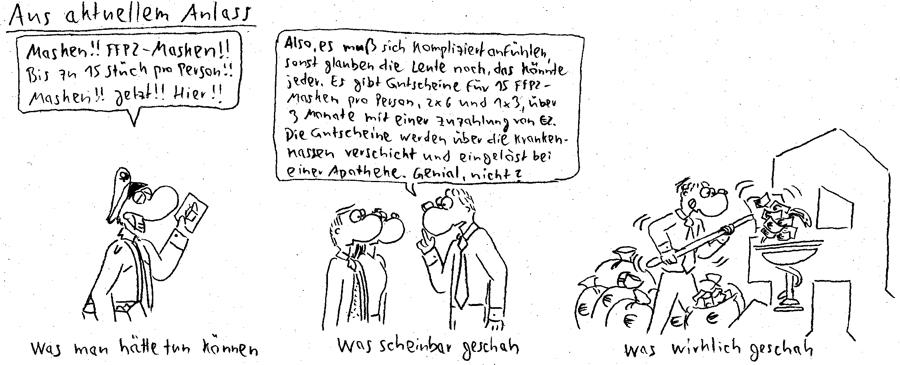 Aus aktuellem Anlass
Masken!! FFP2-Masken!!
Bis zu 15 Stück pro Person!!
Masken!! Jetzt!! Hier!!
Was man hätte tun können
Also, es muß sich kompliziert anfühlen,
sonst glauben die Leute noch, das könnte
jeder. Es gibt Gutscheine für 15 FFP2-
Masken pro Person, 2x6 und 1x3, über
3 Monate mit einer Zuzahlung von €2.
Die Gutscheine werden über die Kranken-
kassen verschickt und eingelöst bei
einer Apotheke. Genial, nicht?
Was scheinbar geschah
€
€
€
€
Was wirklich geschah